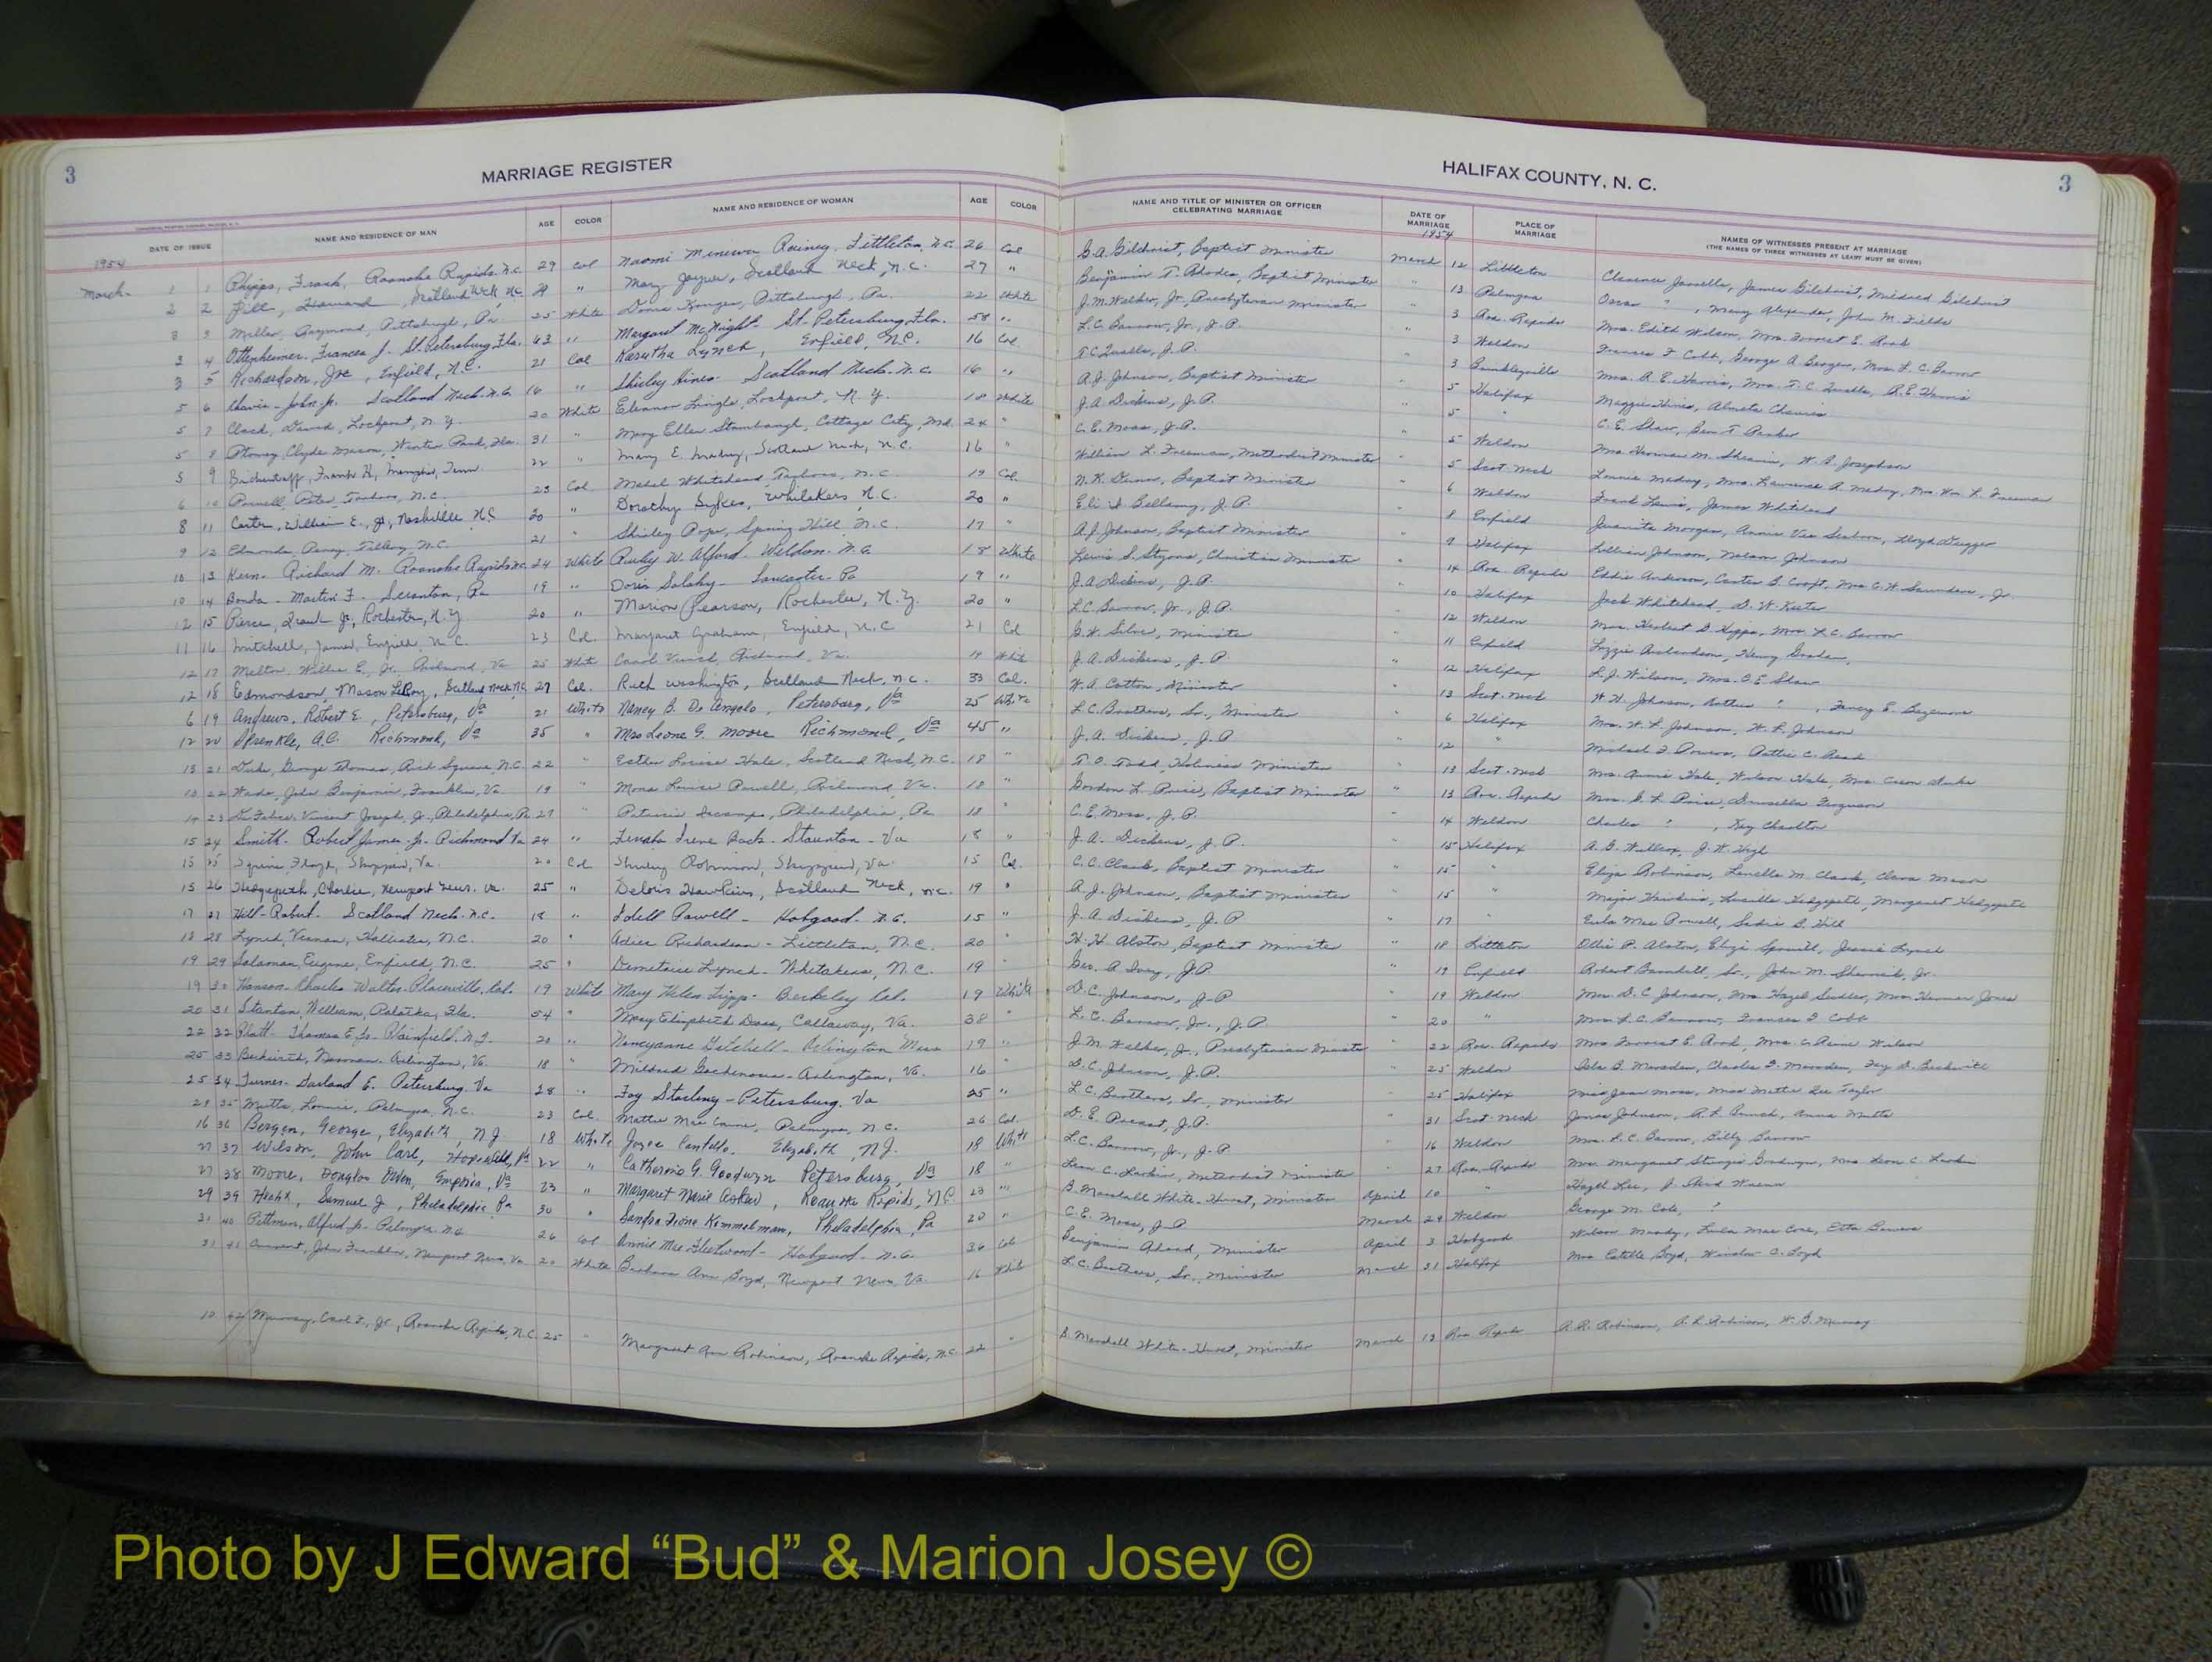 3 MARRIAGE REGISTER
HALIFAX COUNTY, N. C. 3
DATE OF ISSUE NAME AND RESIDENCE OF MAN AGE COLOR NAME AND RESIDENCE OF WOMAN AGE COLOR NAME AND TITLE OF MINISTER OR OFFICER CELEBRATING MARRIAGE DATE OF MARRIAGE PLACE OF MARRIAGE NAMES OF WITNESSES PRESENT AT MARRIAGE (THE NAMES OF THREE WITNESSES AT LEAST MUST BE GIVEN)
1954 1954
March 1 1 Phipps, Frank, Roanoke Rapids, N.C. 29 Col Naomi Rainey, Littleton, N.C. 26 Col G.A. Gilchrist, Baptist Minister March 12 Littleton James Gilchrist, Mildred Gilchrist
2 2 Scotland Neck, N.C. " Mary Joyner, Scotland Neck, N.C. 27 " Benjamin T. Rhodes, Baptist Minister " 13 Palmyra Oscar " , Mary Alexander, John M. Fields
3 3 Miller, Raymond, Pittsburgh, Pa 25 White Pittsburgh, Pa. 22 White J.M. Walker, Jr, Presbyterian Minister " 3 Roa. Rapids Mrs. Edith Wilson, Mrs. Forrest E.
3 4 Ottenheimer, Frances J. St. Petersburg, Fla. 63 " Margaret McNight St. Petersburg, Fla. 58 " L.C. Barrow, Jr., J.P. 3 Weldon Frances F. Cobb, George A. Mrs. L.C. Barrow
3 5 Richardson, Joe, Enfield, N.C. 21 Col Karutha Lynch, Enfield, N.C. 16 Col T.C. Qualls, J.P. 3 Brinkleyville Mrs. A.E. Harris, Mrs. T.C. Qualls, A.E. Harris
5 6 John Jr. Scotland Neck, N.C. 16 " Shirley Hines Scotland Neck, N.C. 16 " A.J. Johnson, Baptist Minister " 5 Halifax Maggie Hines, Almeta
5 7 Clark, David, Lockport, N.Y. 20 White Eleanor Lingle, Lockport, N.Y. 18 White J.A. Dickens, J.P. " 5 " C.E. Shaw, Ben T. Parker
5 8 Clyde Mason, Winter Park, Fla. 31 " Mary Ellen Stambaugh, Cottage City, Md. 24 " C.E. Moss, J.P. 5 Weldon Mrs. Herman M. W. B. Josephson
5 9 Frank H, Memphis, Tenn. 22 " Mary E. Scotland Neck, N.C. 16 " William L. Freeman, Methodist Minister 5 Scot. Neck Mrs. Lawrence A. Mrs. Wm. L. Freeman
6 10 Parnell, Peter, Tarboro, N.C. 23 Col. Mabel Whitehead, Tarboro, N.C. 19 Col. N.K. Dunn, Baptist Minister 6 Weldon Frank Lewis, James Whitehead
8 11 Carter, William E., Jr, Nashville, N.C. 20 " Dorothy Sykes, Whitakers, N.C. 20 " Bellamy, J.P. 8 Enfield Juanita Morgan, Annie Lloyd Dugger
9 12 Edmonds, Percy, Tillery, N.C. 21 " Shirley Pope, Spring Hill, N.C. 17 " A.J. Johnson, Baptist Minister 9 Halifax Lillian Johnson, Nelson Johnson
10 13 Kern, Richard M. Roanoke Rapids, N.C. 24 White Ruby W. Alford Weldon, N.C. 18 White Lewis S. Styons, Christian Minister 14 Roa. Rapids Eddie Anderson, Carter
10 14 Bonda, Martin F. Scranton, Pa 19 " Doris Salahy Lancaster, Pa 19 " J.A. Dickens, J.P. 10 Halifax Jack Whitehead, D.W. Keeter
12 15 Pierce, Jr, Rochester, N.Y. 20 " Marion Pearson, Rochester, N.Y. 20 " L.C. Barrow, Jr., J.P. 12 Weldon Mrs. Herbert Mrs. L.C. Barrow
11 16 Mitchell, James, Enfield, N.C. 23 Col. Margaret Graham, Enfield, N.C. 21 Col Minister 11 Enfield Lizzie Richardson, Henry
12 17 Melton, Willie E., Jr, Richmond, Va 25 White Carol Richmond, Va. White J.A. Dickens, J.P. 12 Halifax L.J. Wilson, Mrs. C.E. Shaw
12 18 Edmondson, Mason LeRoy, Scotland Neck, N.C. 27 Col. Ruth Washington, Scotland Neck, N.C. 33 Col. W.A. Cotton, Minister 13 Scot. Neck W.H. Johnson,
6 19 Andrews, Robert E., Petersburg, Va 21 White Nancy B. De Angelo, Petersburg, Va 25 White L.C. Brothers, Sr., Minister 6 Halifax Mrs. W.L. Johnson, W.L. Johnson
12 20 Sprenkle, A.C. Richmond, Va 35 " Mrs Leone G. Moore Richmond, Va 45 " J.A. Dickens, J.P. 12 " Powers, Pattie C.
13 21 Duke, George Thomas, Rich Square, N.C. 22 " Esther Louise Hale, Scotland Neck, N.C. 18 " T.O. Todd, Holiness Minister 13 Scot. Neck Mrs. Annie Hale, Wilson Hale, Mrs. Duke
13 22 Wade, John Benjamin, Franklin, Va 19 " Mona Louise Powell, Richmond, Va. 18 " Gordon L. Price, Baptist Minister 13 Roa. Rapids Mrs. G.L. Price, Drusella Ferguson
14 23 Vincent Joseph, Jr, Philadelphia, Pa 27 " Patricia Philadelphia, Pa 18 " C.E. Moss, J.P. 14 Weldon Charles " , Kay Charlton
15 24 Smith, Robert James Jr. Richmond Va 24 " Irene Staunton, Va 18 " J.A. Dickens, J.P. 15 Halifax A.B. Willcox, J.W.
15 25 Squire, Floyd, Va. 20 Col Shirley Robinson, Va. 15 Col. C.C. Clark, Baptist Minister 15 " Eliza Robinson, Louella M. Clark, Clara Mason
15 26 Hedgepeth, Charlie, Newport News, Va. 25 " Deloris Hawkins, Scotland Neck, N.C. 19 " A.J. Johnson, Baptist Minister 15 " Major Hawkins, Lucille Hedgepeth, Margaret Hedgepeth
17 27 Hill, Robert. Scotland Neck, N.C. 18 " Idell Powell - Hobgood, N.C. 15 " J.A. Dickens, J.P. 17 " Eula Mae Powell, Sadie B. Hill
18 28 Lynch, Vernon, Hollister, N.C. 20 " Richardson - Littleton, N.C. 20 " H.H. Alston, Baptist Minister 18 Littleton Ollie P. Alston, Jessie Lynch
19 29 Solomon, Eugene, Enfield, N.C. 25 " Demetrice Lynch - Whitakers, N.C. 19 " Geo. A. Ivey, J.P. 19 Enfield Robert Barnhill, Sr., John M. Jr.
19 30 Hanson, Charles Walter, Placerville, Cal. 19 White Mary Helen Tripp - Berkeley, Cal. 19 White D.C. Johnson, J.P. 19 Weldon Mrs. D.C. Johnson, Mrs. Hazel Mrs. Jones
20 31 Stanton, William, Palatka, Fla. 54 " Mary Elizabeth Callaway, Va. 38 " L.C. Barrow, Jr., J.P. 20 " Mrs. L.C. Barrow, Frances F. Cobb
22 32 Platt, Thomas E. Jr. Plainfield, N.J. 20 " Nancyanne Getchell - Arlington Mass 19 " J.M. Walker, Jr., Presbyterian Minister 22 Roa. Rapids Mrs. Forrest E. Mrs. Wilson
25 33 Beckwith, Norman, Arlington, Va. 18 " Mildred - Arlington, Va. 16 " D.C. Johnson, J.P. 25 Weldon Marsden, Charles Marsden, Fay D. Beckwith
25 34 Turner, Garland E. Petersburg, Va 28 " Fay Starling - Petersburg, Va 25 " L.C. Brothers, Sr., Minister 25 Halifax Miss Jean Moss, Miss Mattie Lee Taylor
29 35 Mills, Lonnie, Palmyra, N.C. 23 Col. Mattie Mae Palmyra, N.C. 26 Col. D.E. J.P. 31 Scot. Neck James Johnson,
16 36 Bergen, George, Elizabeth, N.J. 18 White Joyce Elizabeth, N.J. 18 White L.C. Barrow, Jr., J.P. 16 Weldon Mrs. L.C. Barrow, Billy Barrow
27 37 Wilson, John Carl, Hopewell, Va 22 " Catherine G. Goodwyn Petersburg, Va 18 " Leon C. Larkin, Methodist Minister 27 Roa. Rapids Mrs. Margaret Sturgis Goodwyn, Mrs Leon C. Larkin
27 38 Moore, Douglas Owen, Emporia, Va 23 " Margaret Marie Askew, Roanoke Rapids, N.C. 23 " B. Marshall White-Hurst, Minister April 10 " Hazel Lee,
29 39 Samuel J, Philadelphia Pa 30 " Sandra Fione Kimmelman, Philadelphia, Pa 20 " C.E. Moss, J.P. March 29 Weldon George M. Cole,
31 40 Pittman, Alfred Jr. Palmyra, N.C. 26 Col Annie Mae Fleetwood - Hobgood, N.C. 36 Col Benjamin Minister April 3 Hobgood Wilson Moody, Etta
31 41 John Franklin, Newport News, Va 20 White Barbara Ann Boyd, Newport News, Va. 16 White L.C. Brothers, Sr., Minister March 31 Halifax Mrs. Estelle Boyd, Winslow C. Boyd
10 42 Murray, Carl F., Jr., Roanoke Rapids, N.C. 25 " Margaret Ann Robinson, Roanoke Rapids, N.C. 22 " B. Marshall White-Hurst, Minister March 13 Roa. Rapids A.R. Robinson, Robinson, Murray
Photo by J Edward “Bud” & Marion Josey ©